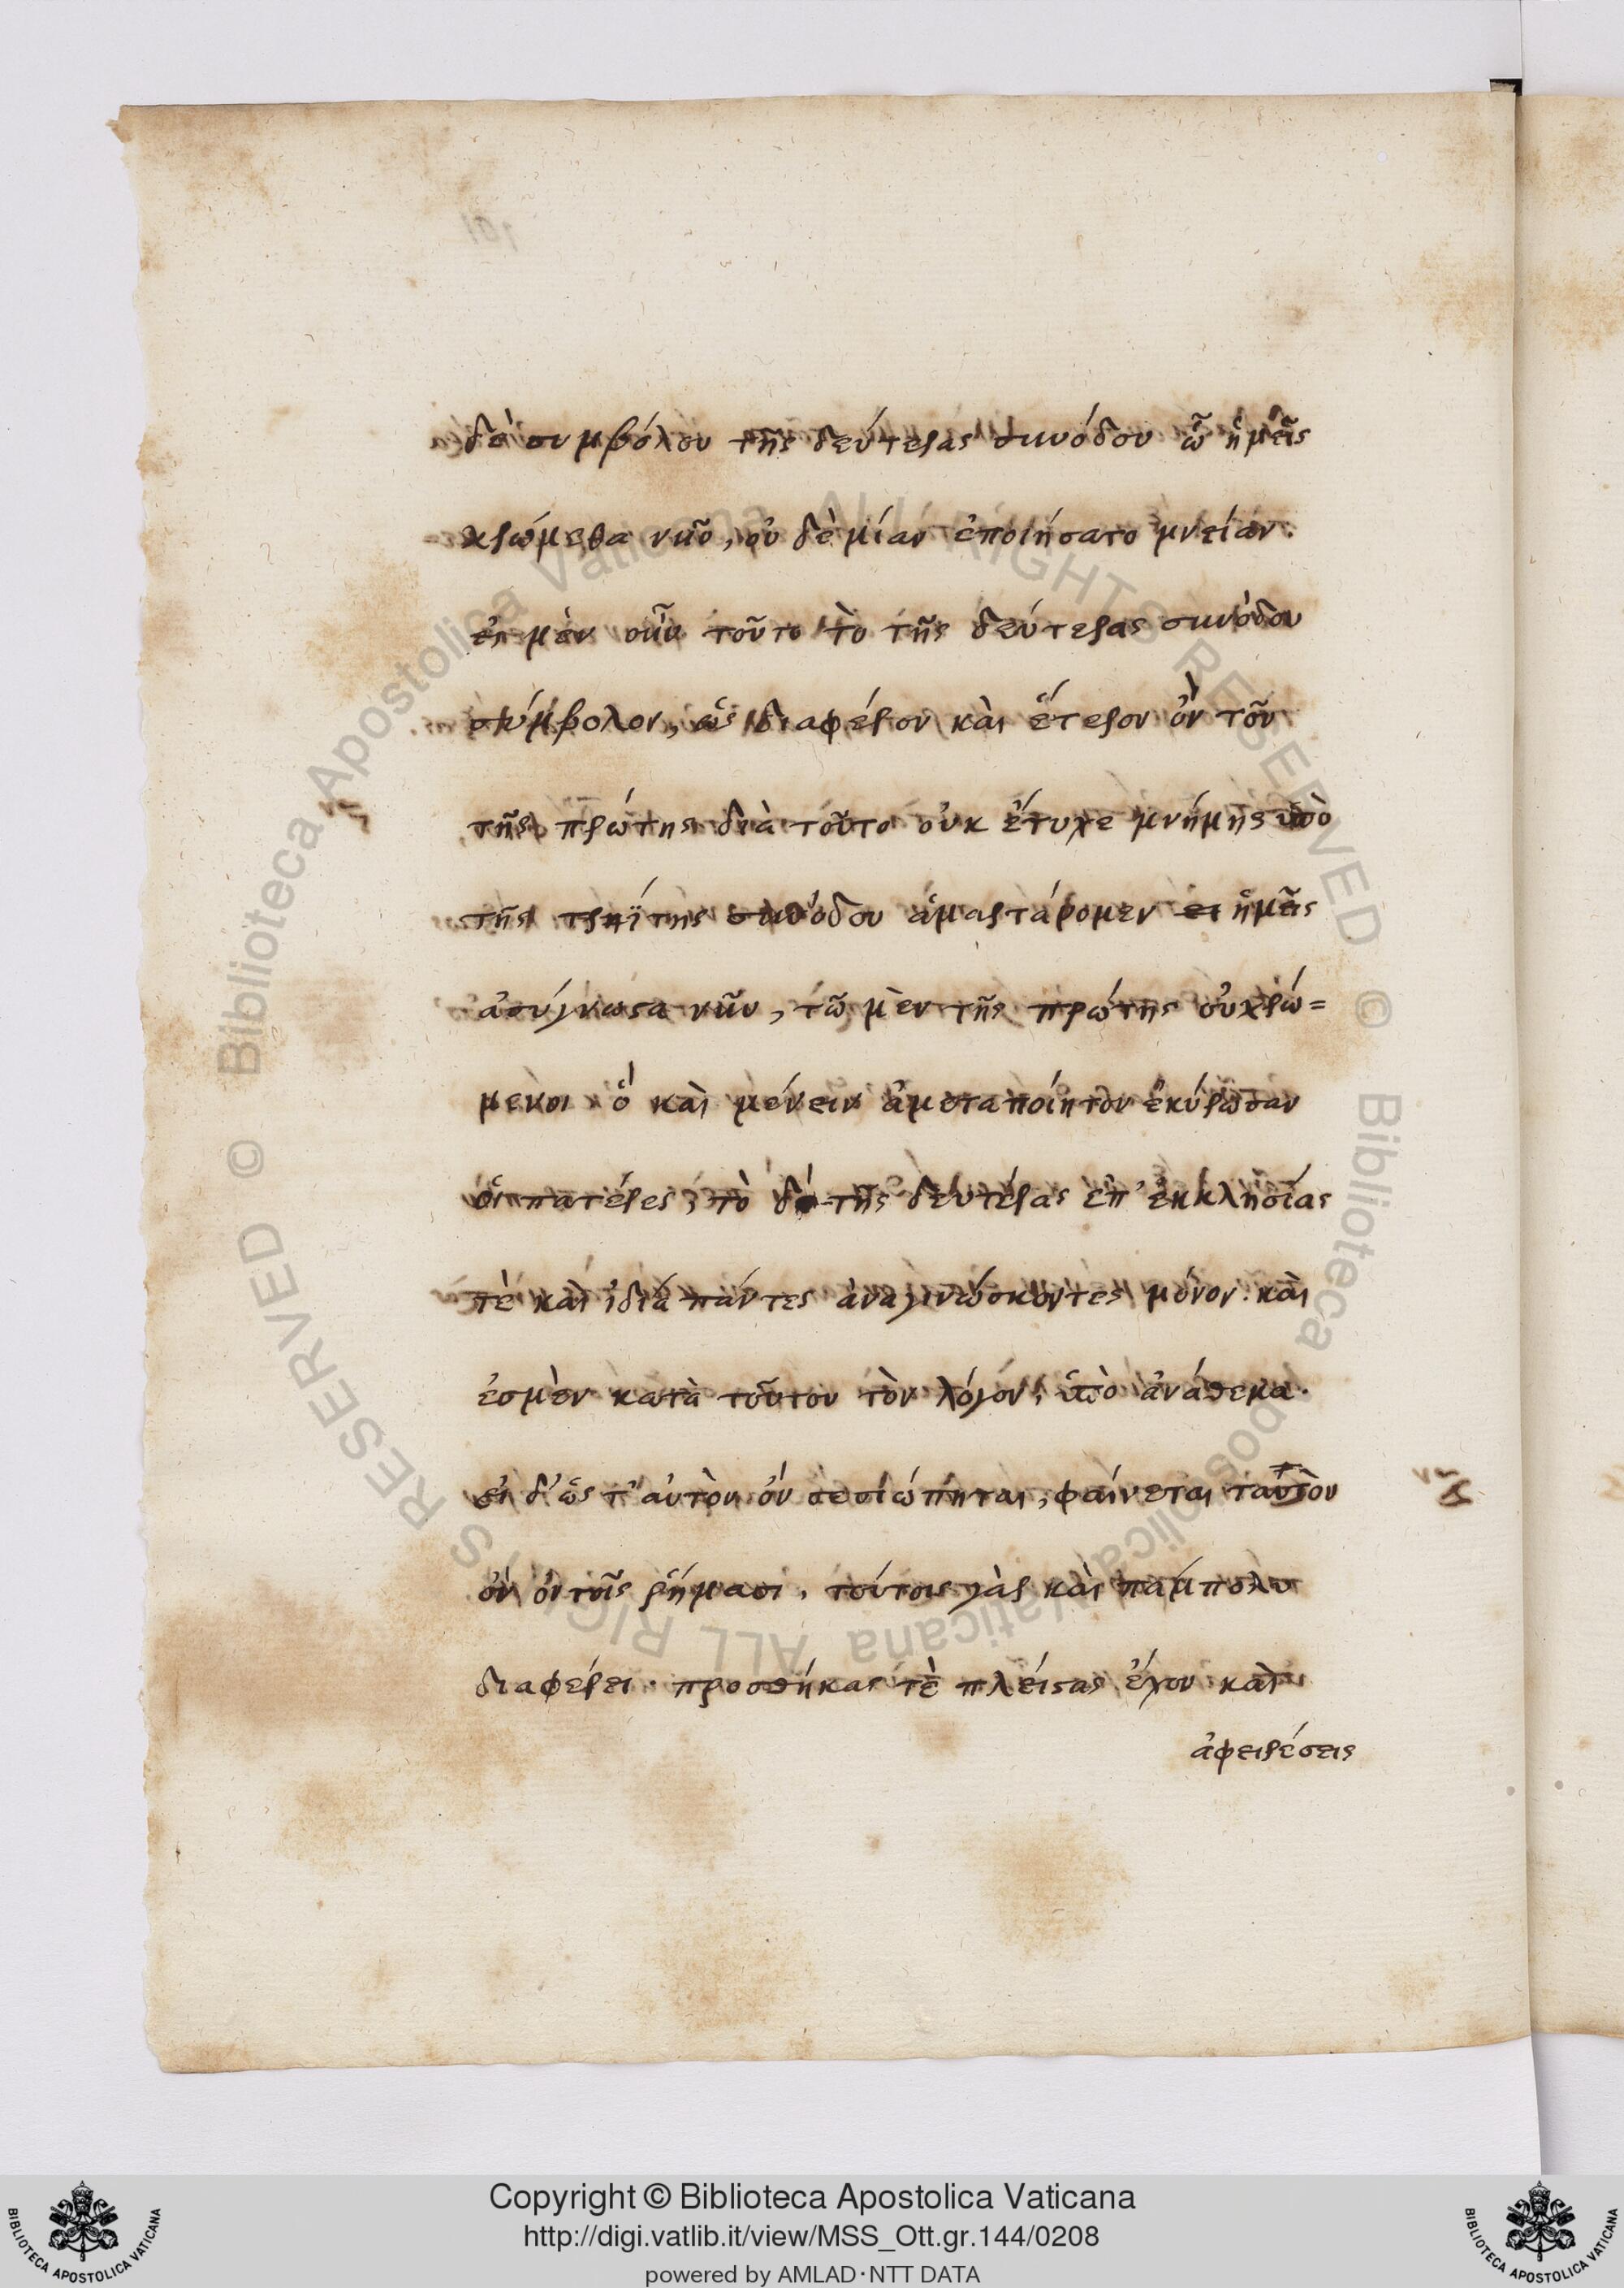 δὲ συμβόλου τῆς δευτέρας συνόδου ὧ ἡμεῖς
χρώμεθα νῦν, οὐ δὲ μίαν ἐποιήσατο μνείαν.
εἰ μὲν οὖν τοῦτο τὸ τῆς δευτέρας συνόδου
σύμβολον, ὡς διαφέρον καὶ ἕτερον ὂν τοῦ
τῆς πρώτης διὰ τοῦτο οὐκ ἔτυχε μνήμης ὑπὸ
τῆς τρίτης συνόδου ἁμαρτάνομεν ἡμεῖς
ἀσύγνωστα νῦν, τῶ μὲν τῆς πρώτης οὐ χρώ=
μενοι ὃ καὶ μένειν ἀμεταποίητον ἐκύρωσαν
οἱ πατέρες, τὸ δὲ τῆς δευτέρας ἐπ' ἐκκλησίας
τὲ καὶ ἰδία πάντες ἀναγινώσκοντες μόνον. καὶ
ἐσμὲν κατὰ τοῦτον τὸν λόγον, ὑπὸ ἀνάθεμα.
εἰ δ' ὡς τ' αὐτὸν ὂν σεσιώπηται, φαίνεται ταυτὸν
ὂν ἐν τοῖς ῥήμασι. τούτοις γὰρ καὶ πάμπολυ
διαφέρει. προσθήκας τὲ πλείστας ἔχον καὶ
ἀφειρέσεις
Copyright © Biblioteca Apostolica Vaticana
http://digi.vatlib.it/view/MSS_Ott.gr.144/0208
powered by AMLAD·NTT DATA
BIBLIOTECA APOSTOLICA VATICANA
BIBLIOTECA APOSTOLICA VATICANA
© Biblioteca Apostolica Vaticana ALL RIGHTS RESERVED © Biblioteca Apostolica Vaticana ALL RIGHTS RESERVED